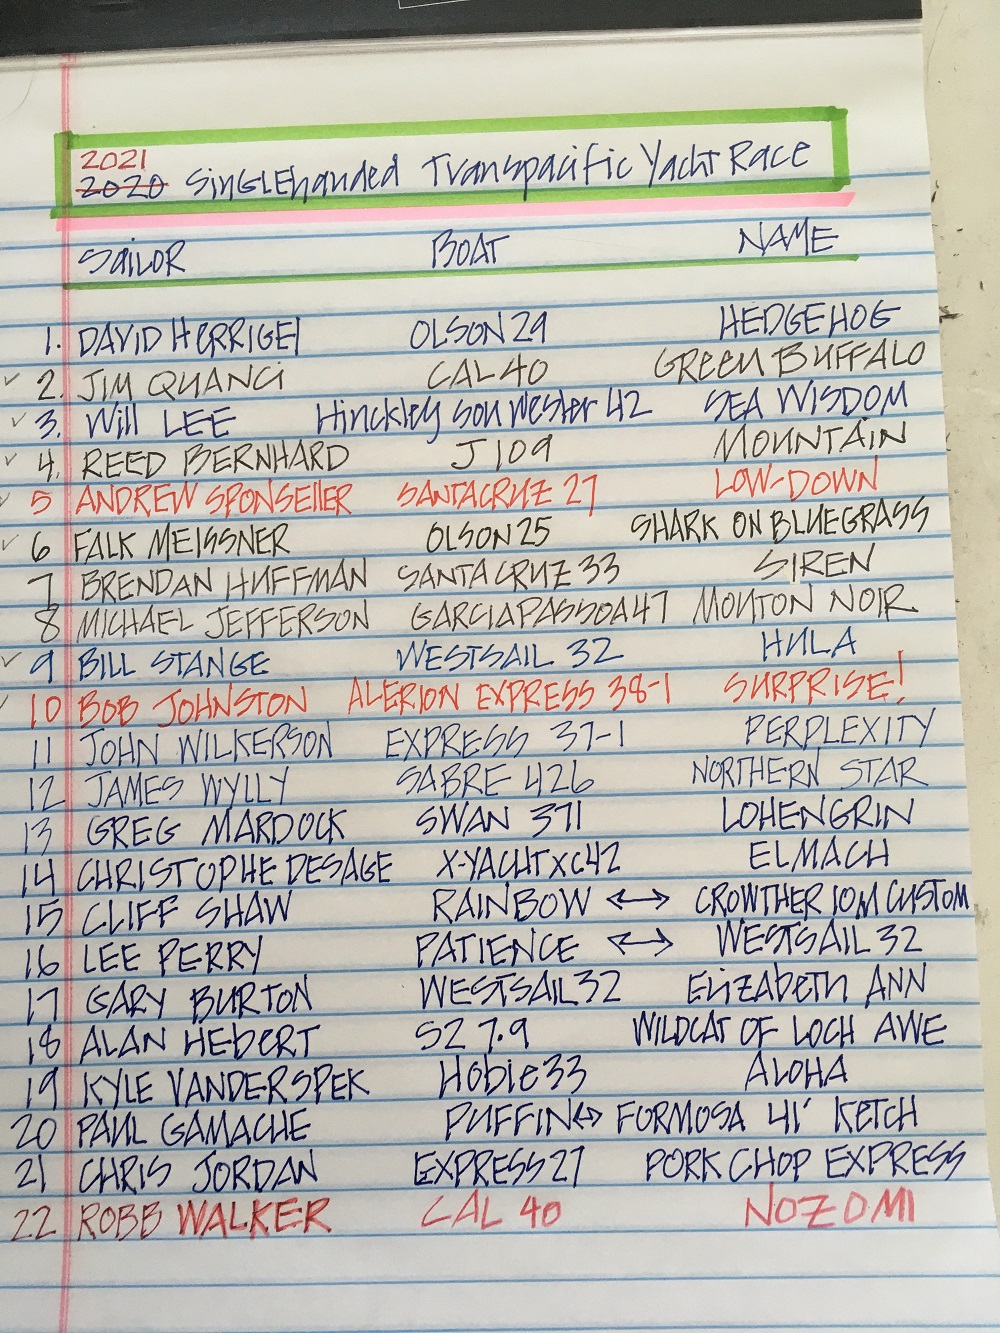 2021
2020 Singlehanded Transpacific Yacht Race
Sailor BOAT NAME
1. DAVID HERRIGEL OLSON 29 HEDGEHOG
2. JIM QUANCI CAL 40 GREEN BUFFALO
3. Will LEE Hinckley sou wester 42 SEA WISDOM
4. REED BERNHARD J 109 MOUNTAIN
5 ANDREW SPONSELLER SANTACRUZ 27 LOW-DOWN
6 FALK MEISSNER OLSON 25 SHARK ON BLUEGRASS
7 BRENDAN HUFFMAN SANTA CRUZ 33 SIREN
8 MICHAEL JEFFERSON GARCIA PASSOA 47 MOUTON NOIR
9 BILL STANGE WESTSAIL 32 HULA
10 BOB JOHNSTON ALERION EXPRESS 38-1 SURPRISE!
11 JOHN WILKERSON EXPRESS 37-1 PERPLEXITY
12 JAMES WYLLY SABRE 426 NORTHERN STAR
13 GREG MARDOCK SWAN 371 LOHENGRIN
14 CHRISTOPHE DESAGE X-YACHT XC42 ELMACH
15 CLIFF SHAW RAINBOW ↔ CROWTHER 10M CUSTOM
16 LEE PERRY PATIENCE ↔ WESTSAIL 32
17 GARY BURTON WESTSAIL 32 Elizabeth ANN
18 ALAN HEBERT S2 7.9 WILDCAT OF LOCH AWE
19 KYLE VANDERSPEK Hobie 33 ALOHA
20 PAUL GAMACHE PUFFIN ↔ FORMOSA 41' KETCH
21 CHRIS JORDAN EXPRESS 27 PORK CHOP EXPRESS
22 ROBB WALKER CAL 40 NOZOMI